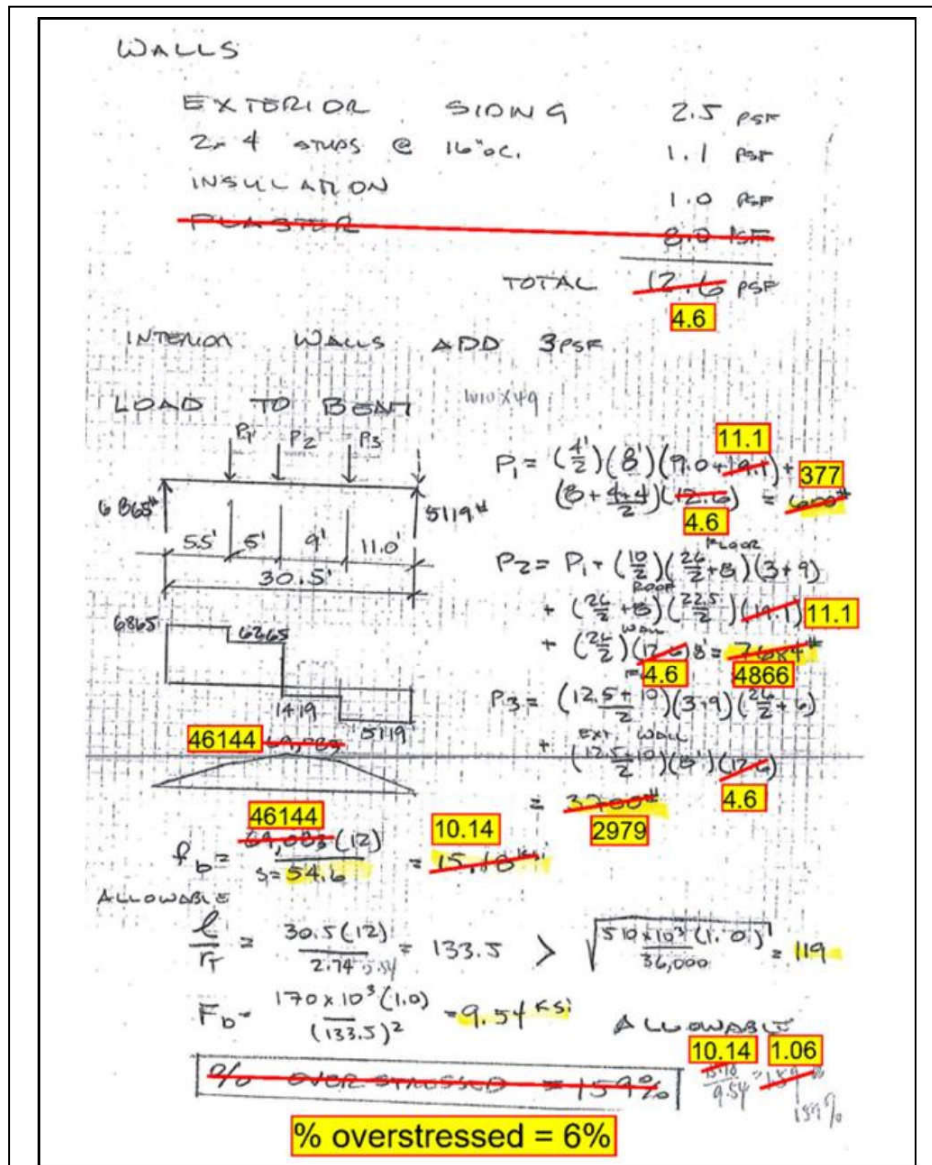 WALLS
EXTERIOR SIDING 2.5 PSF
2x4 STUDS @ 16"OC. 1.1 PSF
INSULATION 1.0 PSF
PLASTER 8.0 PSF
TOTAL 12.6 PSF
4.6
INTERIOR WALLS ADD 3PSF
LOAD TO BEAM W10X49
P1 P2 P3
6865# 5119#
5.5' 5' 9' 11.0'
30.5'
6865 6265
1419 5119
46144 69,083
11.1
P1 = (4'/2)(8')(9.0+19.1) + 377
(8+4+4/2)(12.6) = 600#
4.6
FLOOR
P2 = P1 + (10/2)(26/2+8)(3+9)
ROOF
+ (26/2+8)(22.5/2)(19.1) 11.1
WALL
+ (26/2)(12.6)8 = 7684#
=4.6 4866
P3 = (12.5+10/2)(3+9)(26/2+6)
EXT. WALL
+ (12.5+10/2)(8')(12.6)
4.6
= 3700#
2979
46144
fb = 69,083(12) / S=54.6 = 15.18 KSI
10.14
ALLOWABLE
l/rT = 30.5(12)/2.74 = 133.5 > √510x10³(1.0)/36,000 = 119
Fb = 170x10³(1.0)/(133.5)² = 9.54 KSI
ALLOWABLE
10.14 1.06
15.18/9.54 = 159%
159%
% OVERSTRESSED = 159%
% overstressed = 6%